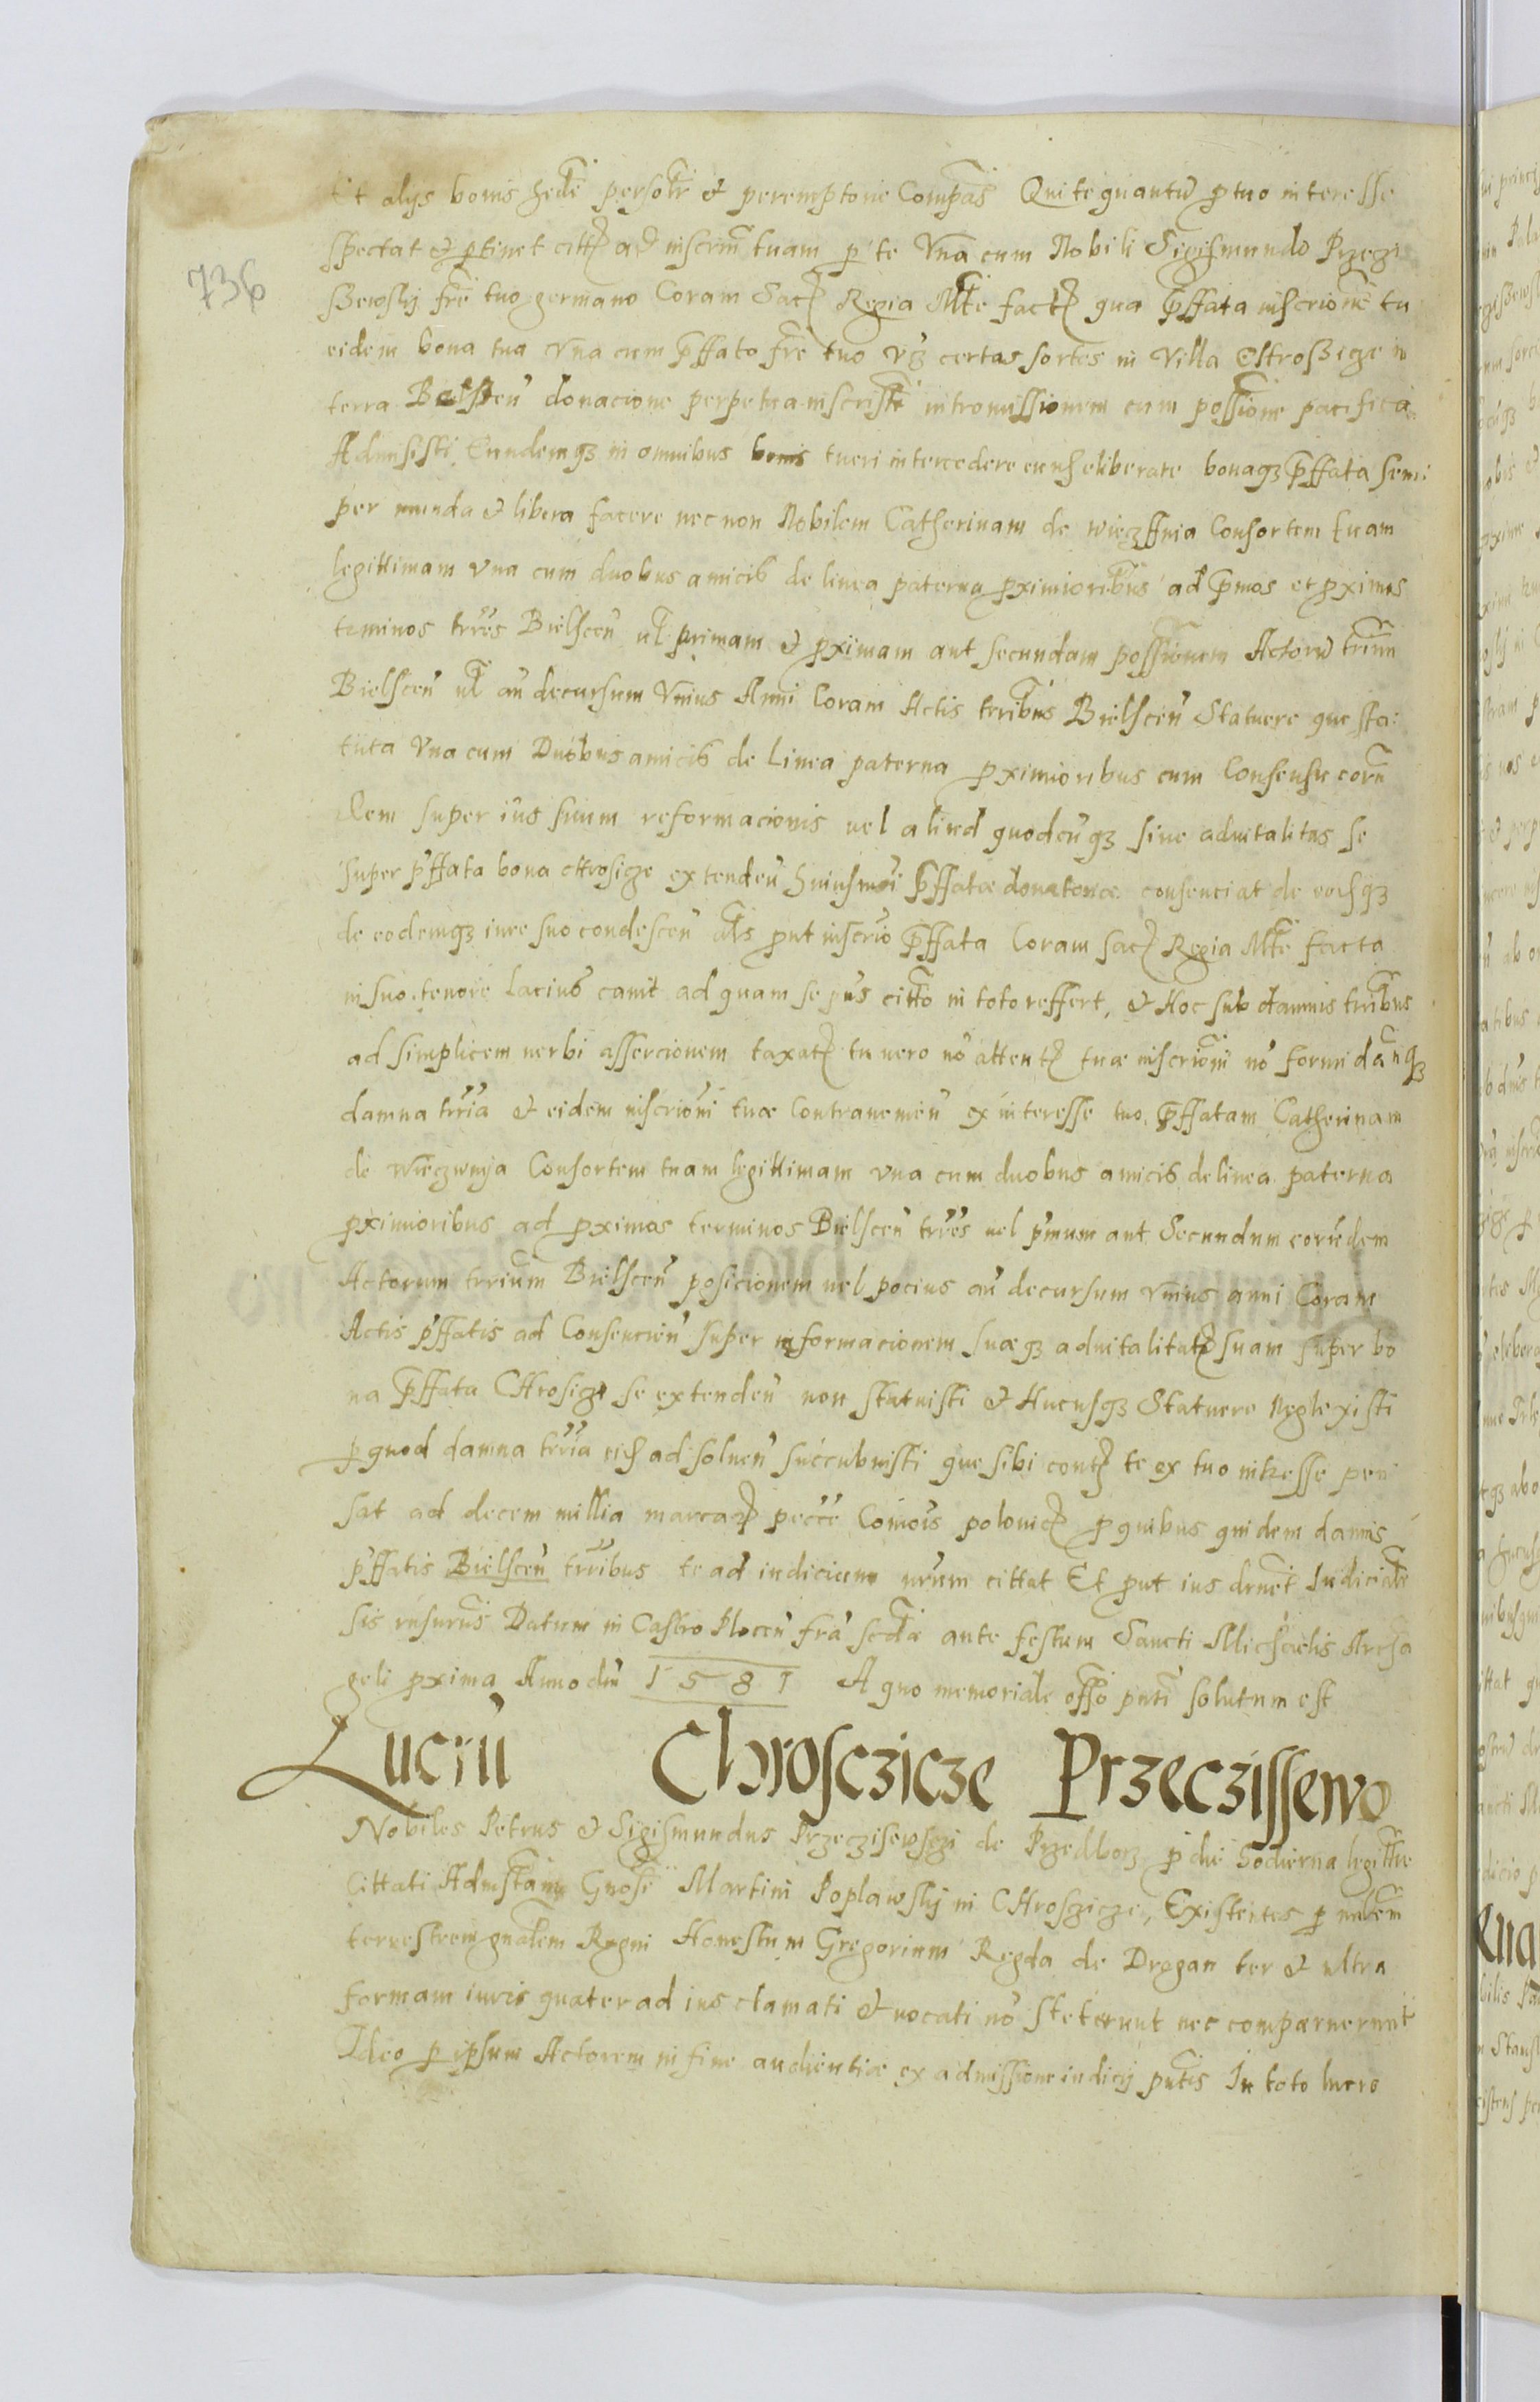 736
Et alys bonis hede persolr & peremptorie Compas Qui te quantu p tuo interesse
spectat & ptinet citt ad inscrim tuam p te Vna cum Nobili Sigismundo Przeczi
szewsky fre tuo germano Coram Sac Regia Mte fact qua pffata inscrione tu
eidem bona tua Vna cum pffato fre tuo vz certas sortes in Villa Chrosczicze in
terra Bielscen donacione perpetua inscriste intromissionem cum possione pacifica
Admisisti Eundemqz in omnibus bonis tueri intercedere euisceliberare bonaqz pffata sem
per munda & libera facere necnon Nobilem Catherinam de wieczffnia Consortem tuam
legittimam vna cum duobus amicis de linea paterna pximioribus ad pmos et pximos
terminos trres Bielscen ul primam & pximam aut secundam possionem Actoru trrium
Bielscen ul an decursum Vnius Anni Coram Actis trribus Bielscen Statuere que sta:
tuta Vna cum Duobus amicis de Linea paterna pximioribus cum Consensu eorun
dem super ius suum reformacionis uel aliud quodcunqz siue aduitalitas se
super pffata bona chrosicze extenden huiusmoi pffatæ donatonæ consenciat de eoisqz
de eodemqz iure suo condescen als put inscrio pffata Coram sac Regia Mte facta
in suo tenore Lacius canit ad quam se pns citto in toto reffert, & Hoc sub damnis trribus
ad simplicem uerbi assercionem taxat tu uero no attent tuæ inscrioni no formidanqz
damna trria & eidem inscrioni tuæ Contrauenien ex interesse tuo pffatam Catherinam
de Wieczwnija Consortem tuam legittimam vna cum duobus amicis de linea paterna
pximioribus ad pximos terminos Bielscen trres uel pmum aut Secundum eorundem
Actorum trrium Bielscen posicionem uel pocius an decursum vnius anni Coram
Actis pffatis ad Consencien super reformacionem suæqz aduitalitat suam super bo
na pffata Chrosicze se extenden non statuisti & Hucusqz Statuere Neglexisti
p quod damna trria eis ad soluen succubuisti que sibi cont te ex tuo interesse pen
sat ad decem millia marcar pecce Comois polonic p quibus quidem damis
pffatis Bielscen trribus te ad iudicium nrum cittat Et put ius druet Iudicialr
sis rnsurus Datum in Castro Plocen fra scda ante festum Sancti Michaelis Archa
geli pxima Anno dni 1581 A quo memoriale offo pnti solutum est
Lucru Chrosczicze Przeczissewo
Nobiles Petrus & Sigismundus Przeczisewsczi de Przedborz p die hodierna legittie
Cittati Ad instaniam Gnosi Martini Poplawsky in Chrosczicze, Existentes p mlem
terrestrem gnalem Regni Honestum Gregorium Regda de Drogan ter & ultra
formam iuris quater ad ius clamati & uocati no steterunt nec comparuerunt
Ideo p ipsum Actorem in fine audientiæ ex admissione iudicij pntis In toto lucro